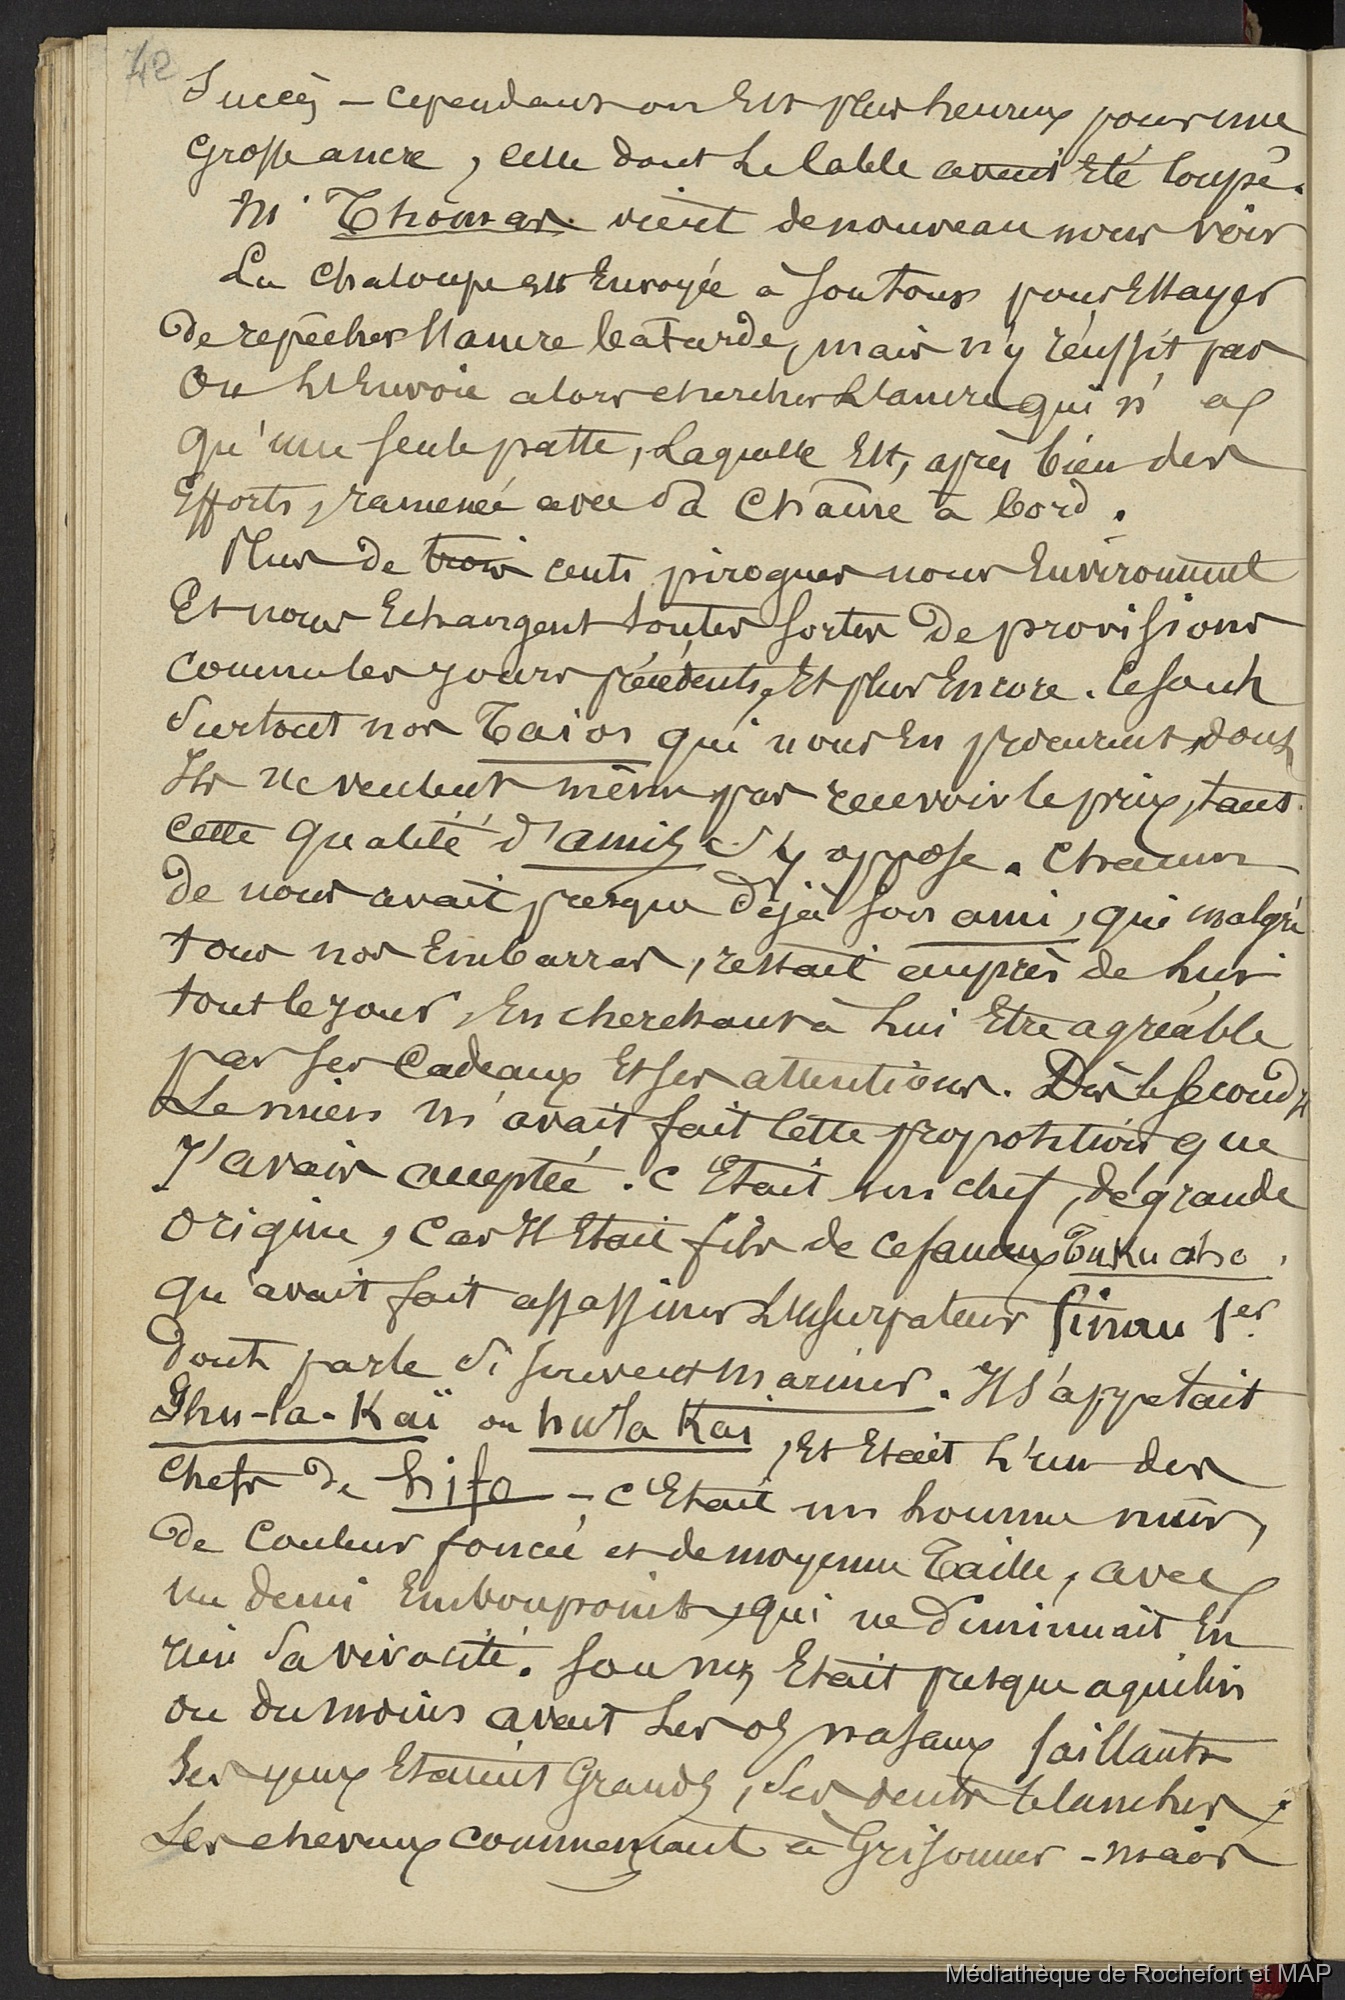 42
Succès – cependant on Est plus heureux pour une
grosse ancre, celle dont Le cable avait Eté coupé.
Mr Thomas. vient de nouveau nous voir
La Chaloupe est Envoyée à son tour pour Essayer
de repêcher l'ancre batarde, mais n'y réussit pas
On L'Envoie alors chercher L'ancre qui n'a
qu'une seule patte, Laquelle Est, après bien des
Efforts, ramenée avec sa Chaîne à bord.
Plus de trois cents pirogues nous Environnent
Et nous Echangent toutes sortes de provisions
comme les jours précédents, Et plus Encore. Ce sont
Surtout nos Taïos qui nous En procurent, dont
Ils ne veulent même pas recevoir le prix, tant
cette qualité d'amis s'y oppose. Chacun
de nous avait presque déjà son ami, qui malgré
tous nos Embarras, restait auprès de Lui
tout le jour, En cherchant à Lui Etre agréable
par ses Cadeaux Et ses attentions. Dès le second jr
Le mien m'avait fait cette proposition que
J'avais acceptée. C'Etait un chef, de grande
origine, Car Il Etait fils de ce fameux Tukuaho,
qu'avait fait assassiner L'Usurpateur finau 1er
dont parle si souvent Mariner. Il s'appelait
Ghu-la-Kaï ou hula Kai, Et Etait L'un des
Chefs de hifo – C'Etait un homme mûr,
de Couleur foncée et de moyenne Taille, avec
un demi Embonpoint, qui ne diminuait En
rien sa vivacité. Son nez Etait presque aquilin
ou du moins avait Les os nasaux saillants
Ses yeux Etaient Grands, Ses dents blanches,
Les cheveux commençant à Grisonner – mais
Médiathèque de Rochefort et MAP